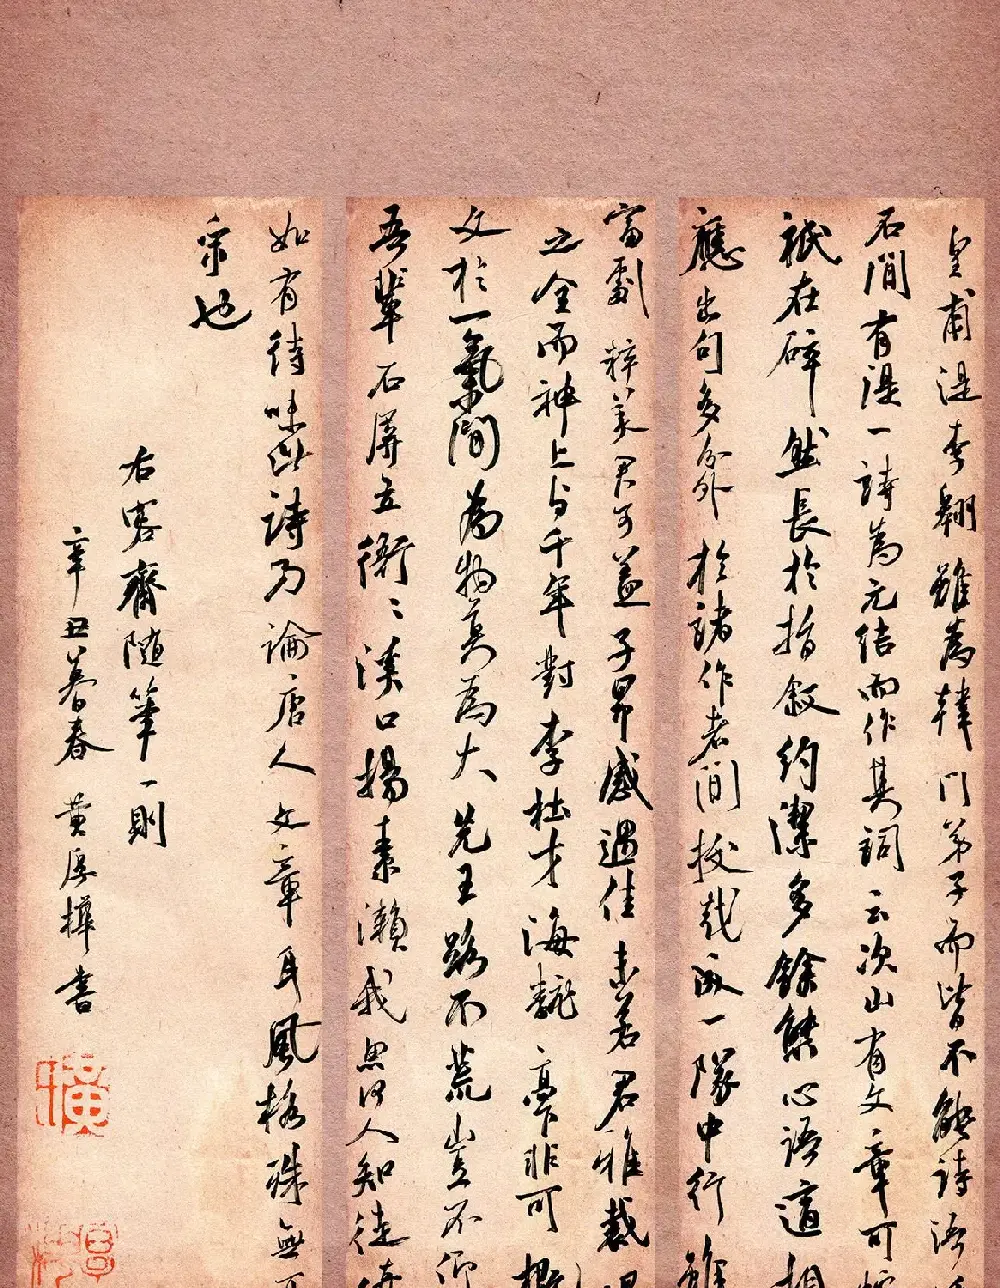 皇甫湜李翱雖為韓門弟子而皆不能詩浯
石間有湜一詩為元結而作其詞云次山有文章可惋
祇在碎然長於指敘約潔多餘態心語適相
應出句多分外於諸作者間拔戟成一隊中行雖
富劇粹美君可蓋子昂感遇佳未若君雅裁退
之全而神上与千年對李杜才海翻高下非可概
文於一氣間為物莫為大先王路不荒豈不仰
吾輩石屏立衙〻溪口揚素瀨我思何人知徙倚
如有待味此詩乃論唐人文章耳風格殊無可
采也
右容齋隨筆一則
辛丑暮春 黃厚樺書